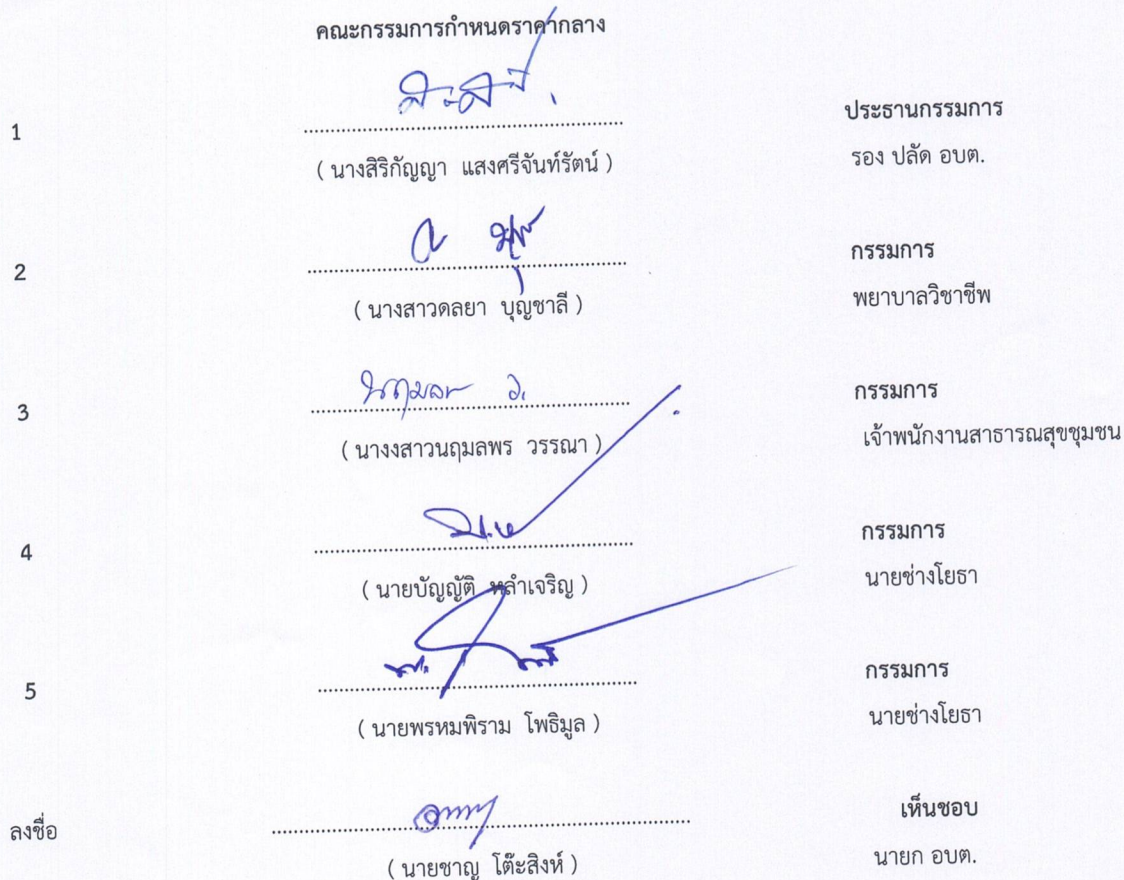 คณะกรรมการกำหนดราคากลาง
1 ประธานกรรมการ
( นางสิริกัญญา แสงศรีจันทร์รัตน์ ) รอง ปลัด อบต.
2 กรรมการ
( นางสาวดลยา บุญชาลี ) พยาบาลวิชาชีพ
3 กรรมการ
( นางงสาวนฤมลพร วรรณา ) เจ้าพนักงานสาธารณสุขชุมชน
4 กรรมการ
( นายบัญญัติ หลำเจริญ ) นายช่างโยธา
5 กรรมการ
( นายพรหมพิราม โพธิมูล ) นายช่างโยธา
ลงชื่อ เห็นชอบ
( นายชาญ โต๊ะสิงห์ ) นายก อบต.